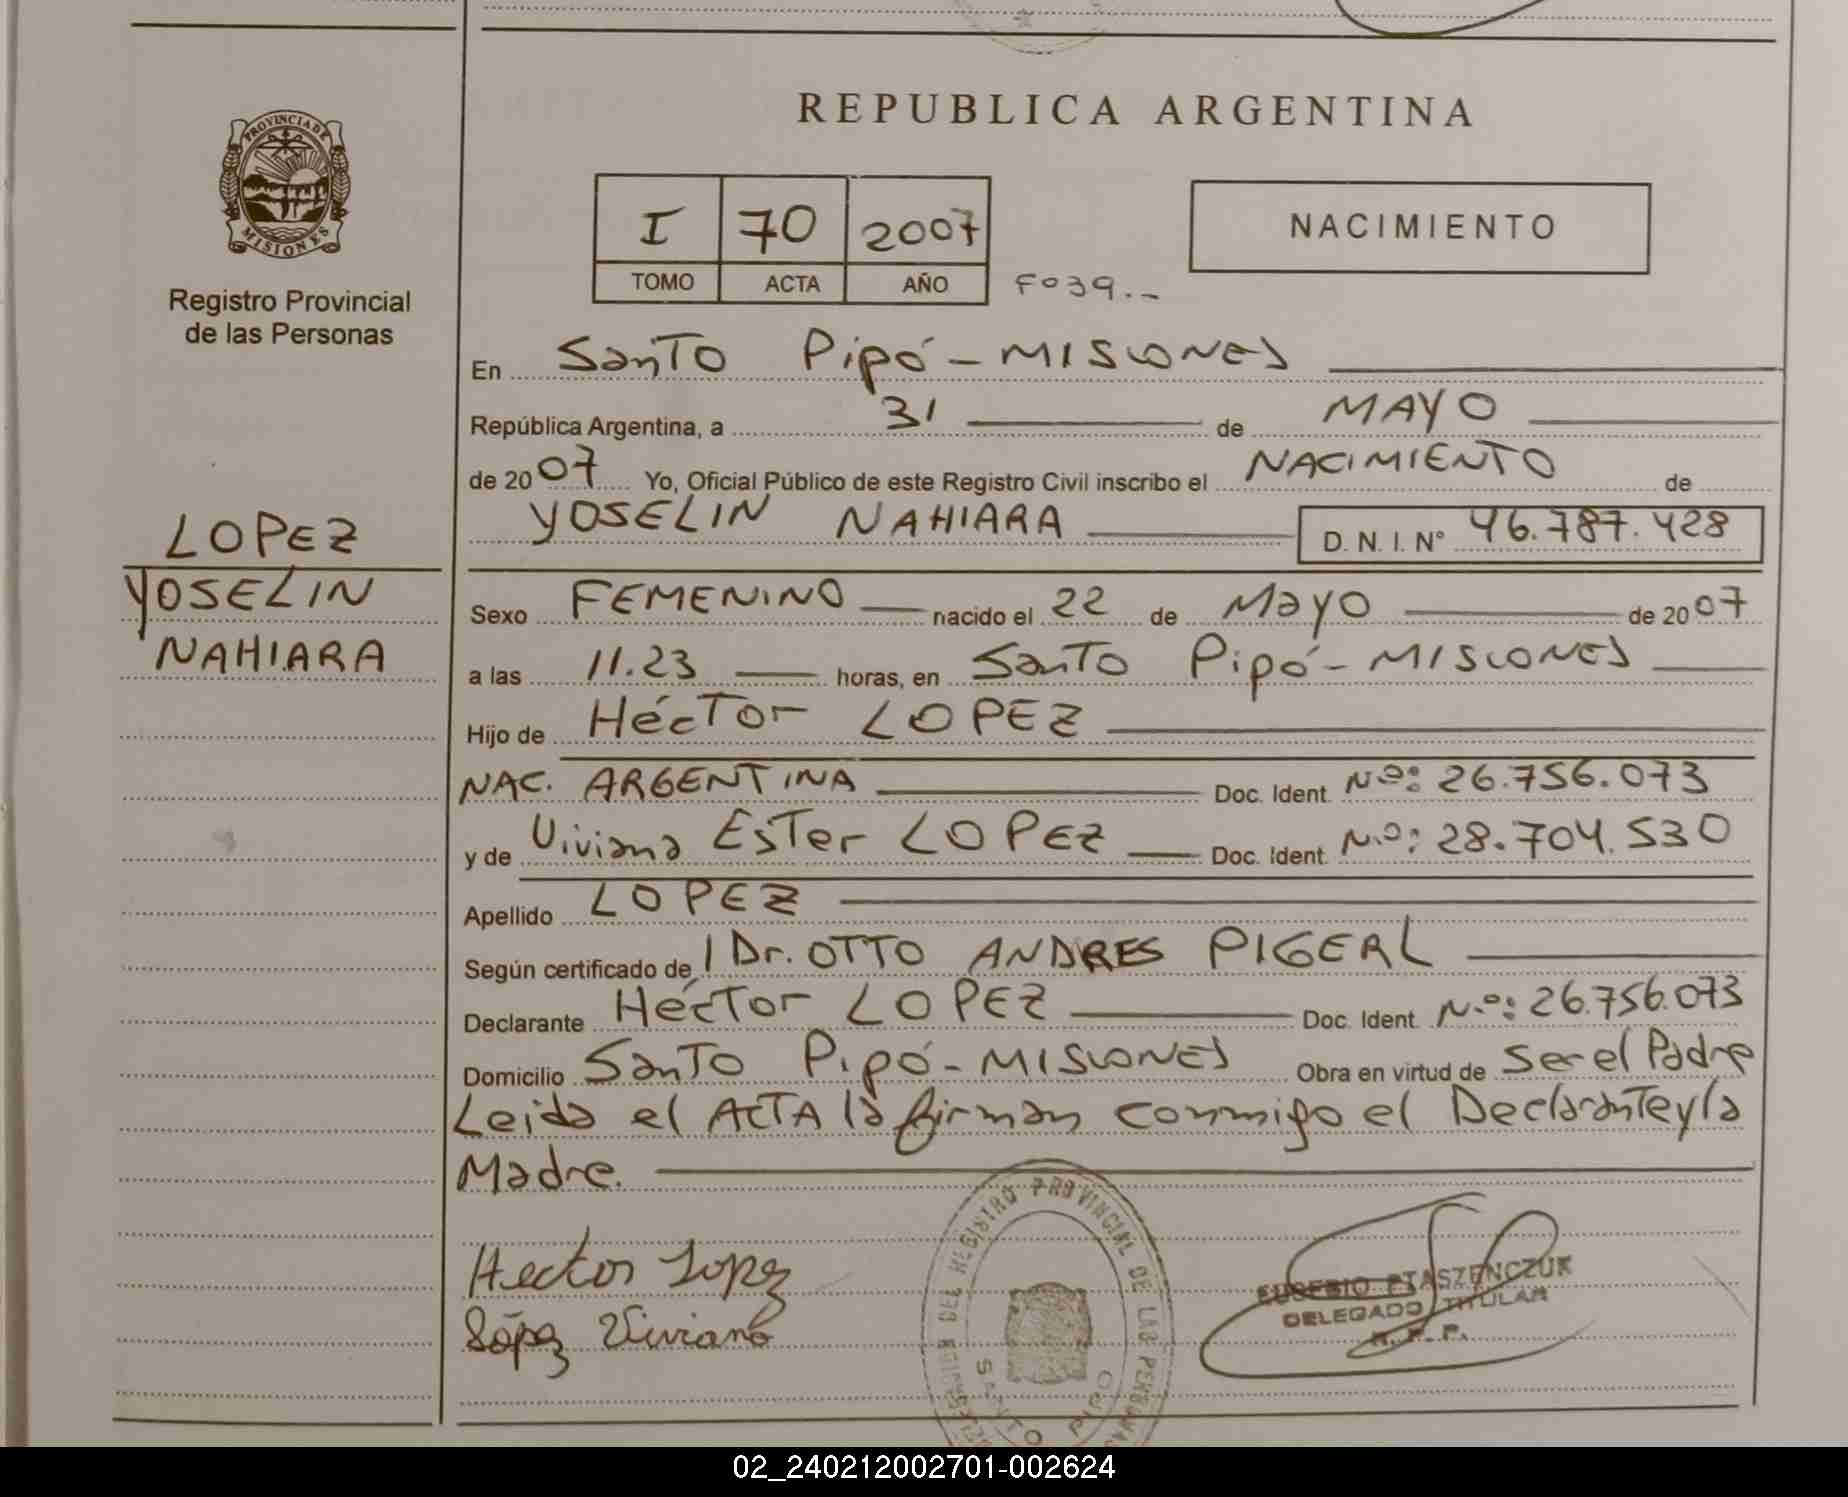 PROVINCIA DE
MISIONES
Registro Provincial
de las Personas
LOPEZ
YOSELIN
NAHIARA
REPUBLICA ARGENTINA
I 70 2007
TOMO ACTA AÑO
F039.-
NACIMIENTO
En Santo Pipó - MISIONES
República Argentina, a 31 de MAYO
de 2007 Yo, Oficial Público de este Registro Civil inscribo el NACIMIENTO de
YOSELIN NAHIARA D. N. I. Nº 46.787.428
Sexo FEMENINO nacido el 22 de Mayo de 2007
a las 11.23 horas, en Santo Pipó - MISIONES
Hijo de Héctor LOPEZ
NAC. ARGENTINA Doc. Ident. Nº: 26.756.073
y de Viviana Ester LOPEZ Doc. Ident. Nº: 28.704.530
Apellido LOPEZ
Según certificado de Dr. OTTO ANDRES PIGERL
Declarante Héctor LOPEZ Doc. Ident. Nº: 26.756.073
Domicilio Santo Pipó - MISIONES Obra en virtud de Ser el Padre
Leida el ACTA la firman conmigo el Declarante y la
Madre.
Hector Lopez
López Viviana
DEL REGISTRO PROVINCIAL DE LAS PERSONAS
SANTO PIPO
EUGEBIO PTASZENCZUK
DELEGADO TITULAR
R. P. P.
02_240212002701-002624